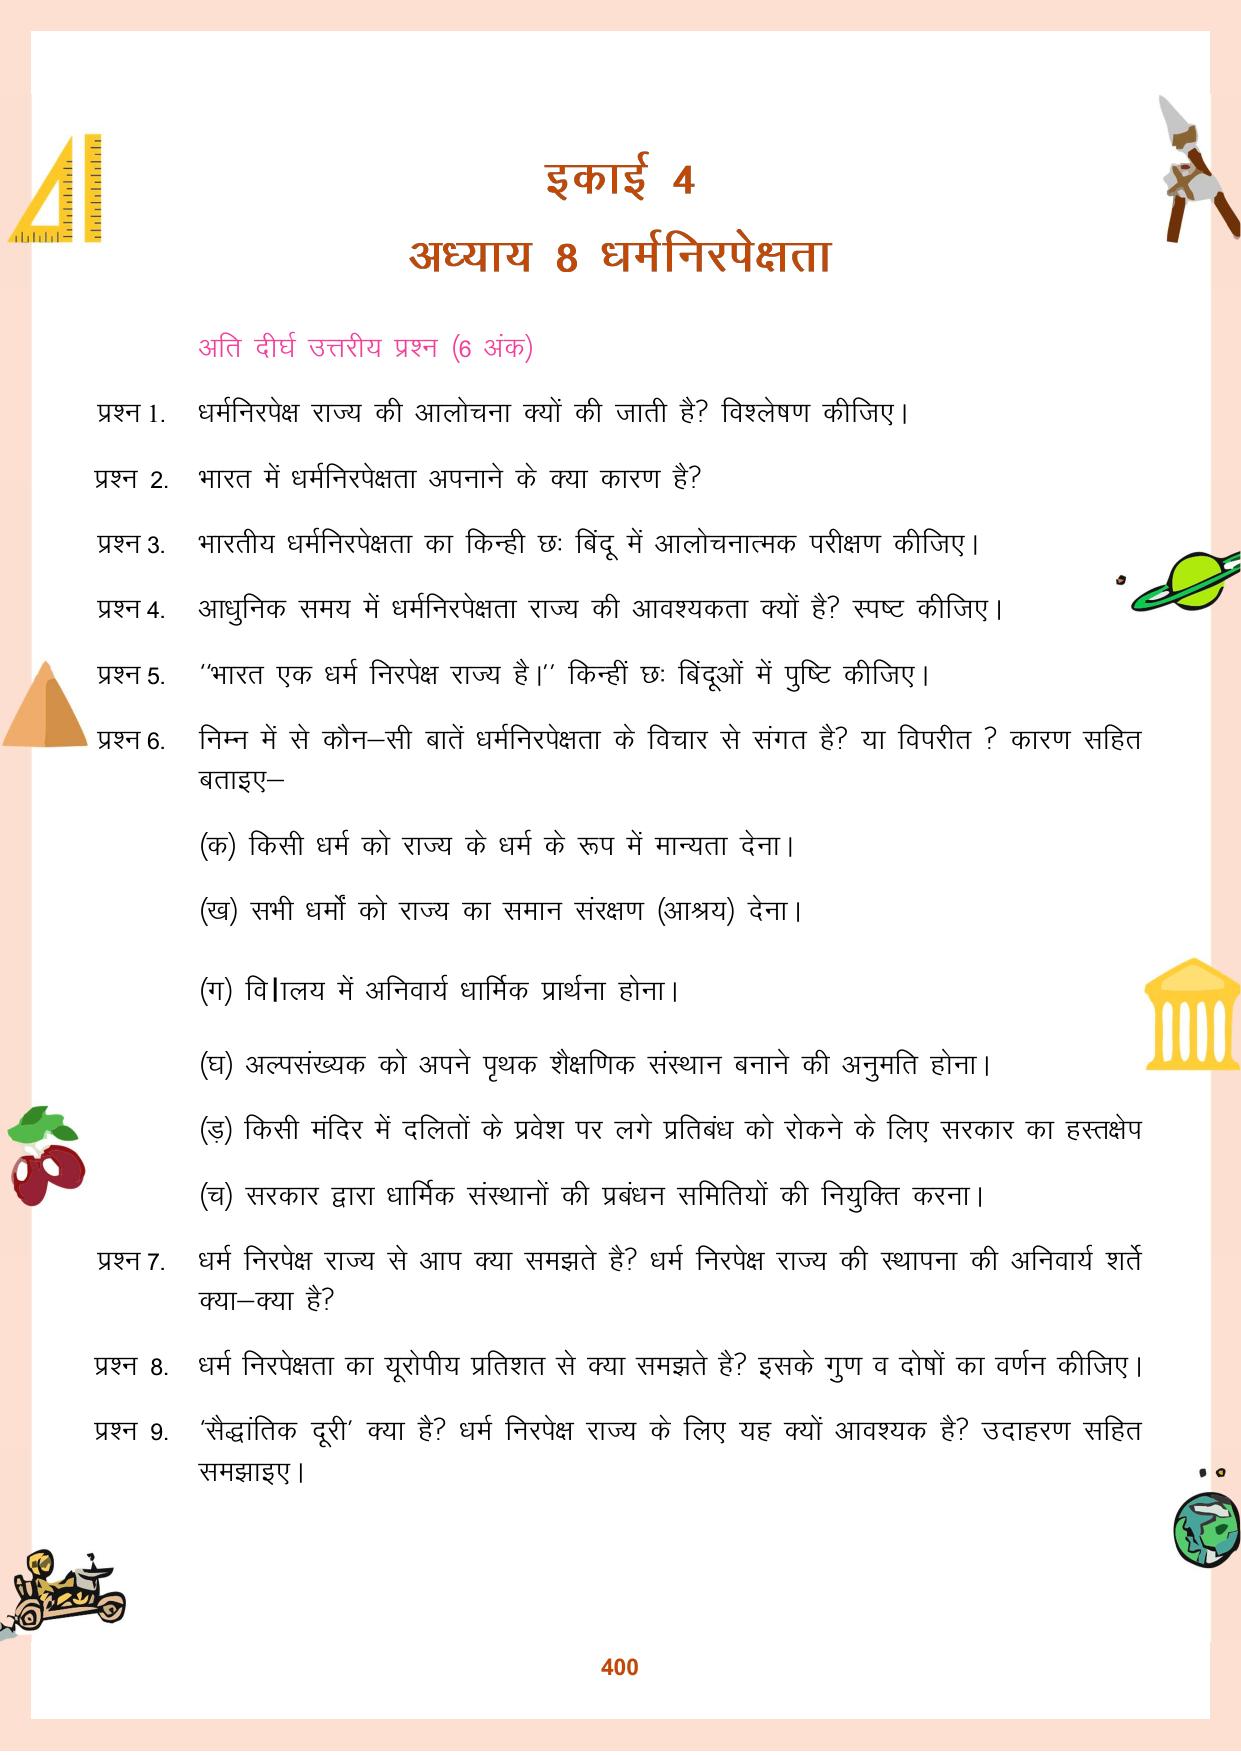 इकाई 4
अध्याय 8 धर्मनिरपेक्षता
अति दीर्घ उत्तरीय प्रश्न (6 अंक)
प्रश्न 1. धर्मनिरपेक्ष राज्य की आलोचना क्यों की जाती है? विश्लेषण कीजिए।
प्रश्न 2. भारत में धर्मनिरपेक्षता अपनाने के क्या कारण है?
प्रश्न 3. भारतीय धर्मनिरपेक्षता का किन्ही छः बिंदू में आलोचनात्मक परीक्षण कीजिए।
प्रश्न 4. आधुनिक समय में धर्मनिरपेक्षता राज्य की आवश्यकता क्यों है? स्पष्ट कीजिए।
प्रश्न 5. ‘‘भारत एक धर्म निरपेक्ष राज्य है।’’ किन्हीं छः बिंदूओं में पुष्टि कीजिए।
प्रश्न 6. निम्न में से कौन–सी बातें धर्मनिरपेक्षता के विचार से संगत है? या विपरीत ? कारण सहित
बताइए–
(क) किसी धर्म को राज्य के धर्म के रूप में मान्यता देना।
(ख) सभी धर्मों को राज्य का समान संरक्षण (आश्रय) देना।
(ग) वि|ालय में अनिवार्य धार्मिक प्रार्थना होना।
(घ) अल्पसंख्यक को अपने पृथक शैक्षणिक संस्थान बनाने की अनुमति होना।
(ड़) किसी मंदिर में दलितों के प्रवेश पर लगे प्रतिबंध को रोकने के लिए सरकार का हस्तक्षेप
(च) सरकार द्वारा धार्मिक संस्थानों की प्रबंधन समितियों की नियुक्ति करना।
प्रश्न 7. धर्म निरपेक्ष राज्य से आप क्या समझते है? धर्म निरपेक्ष राज्य की स्थापना की अनिवार्य शर्ते
क्या–क्या है?
प्रश्न 8. धर्म निरपेक्षता का यूरोपीय प्रतिशत से क्या समझते है? इसके गुण व दोषों का वर्णन कीजिए।
प्रश्न 9. ‘सैद्धांतिक दूरी’ क्या है? धर्म निरपेक्ष राज्य के लिए यह क्यों आवश्यक है? उदाहरण सहित
समझाइए।
400